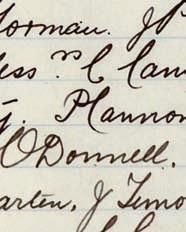 orman. J
ess rs C Can
J. Plannon
O'Donnell.
arten, J Timo